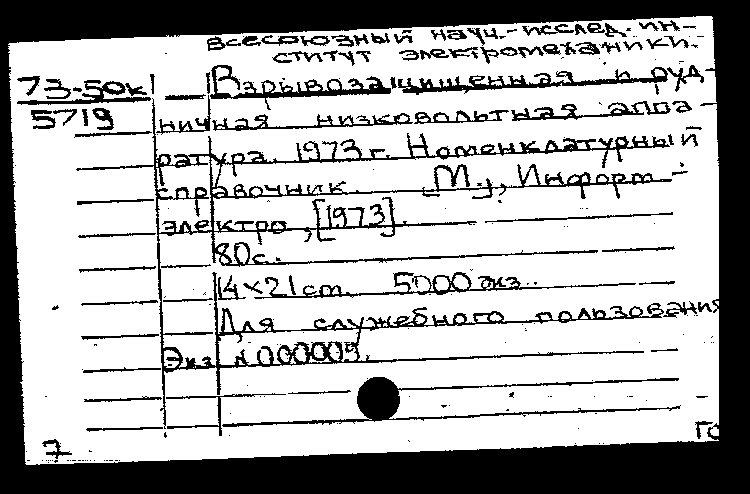 Всесоюзный науч.-исслед. ин-
ститут электромеханики.
73-50к Взрывозащищенная и руд-
5719 ничная низковольтная аппа-
ратура. 1973 г. Номенклатурный
справочник. [М.], Информ-
электро, [1973].
80с.
14×21 cm. 5000 экз.
Для служебного пользования
Экз. №000009.
7 ГО